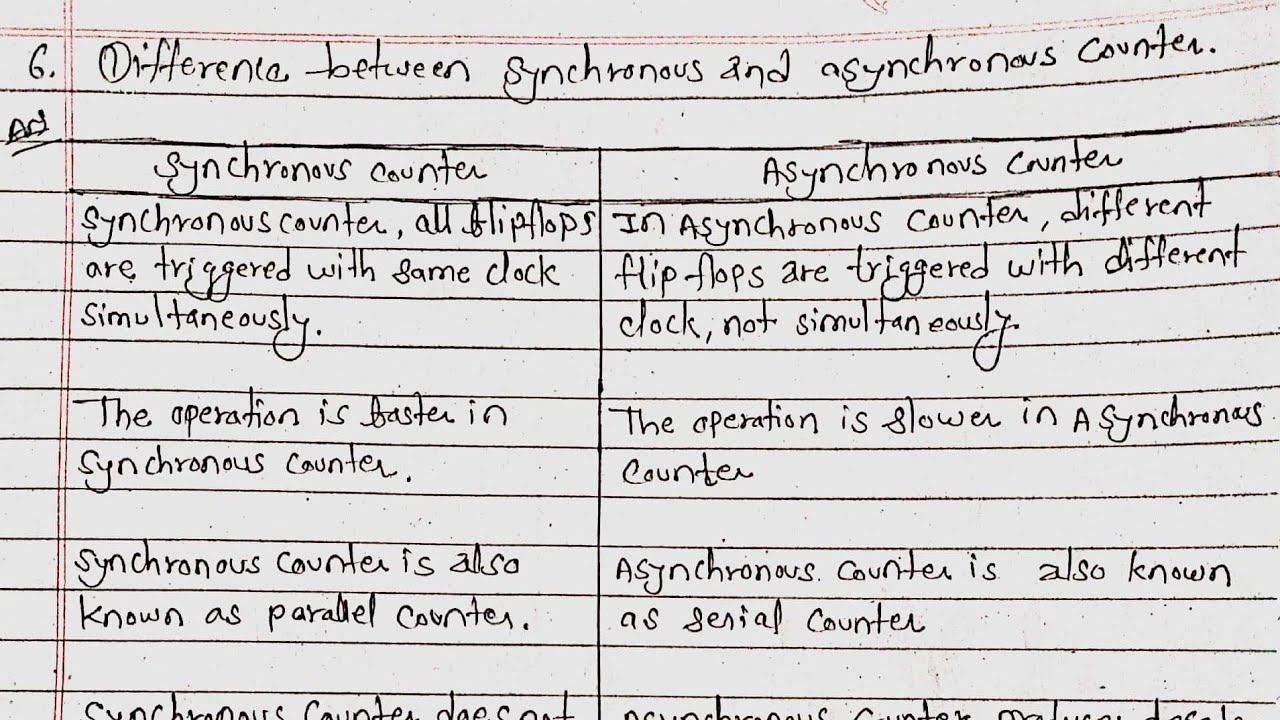 6. Difference between synchronous and asynchronous counter.
Ans
Synchronous counter
Asynchronous counter
synchronous counter, all flipflops
are triggered with same clock
simultaneously.
In Asynchronous counter, different
flip flops are triggered with different
clock, not simultaneously.
The operation is faster in
synchronous counter.
The operation is slower in Asynchronous
counter
synchronous counter is also
known as parallel counter.
Asynchronous counter is also known
as serial counter
synchronous counter does not
asynchronous counter